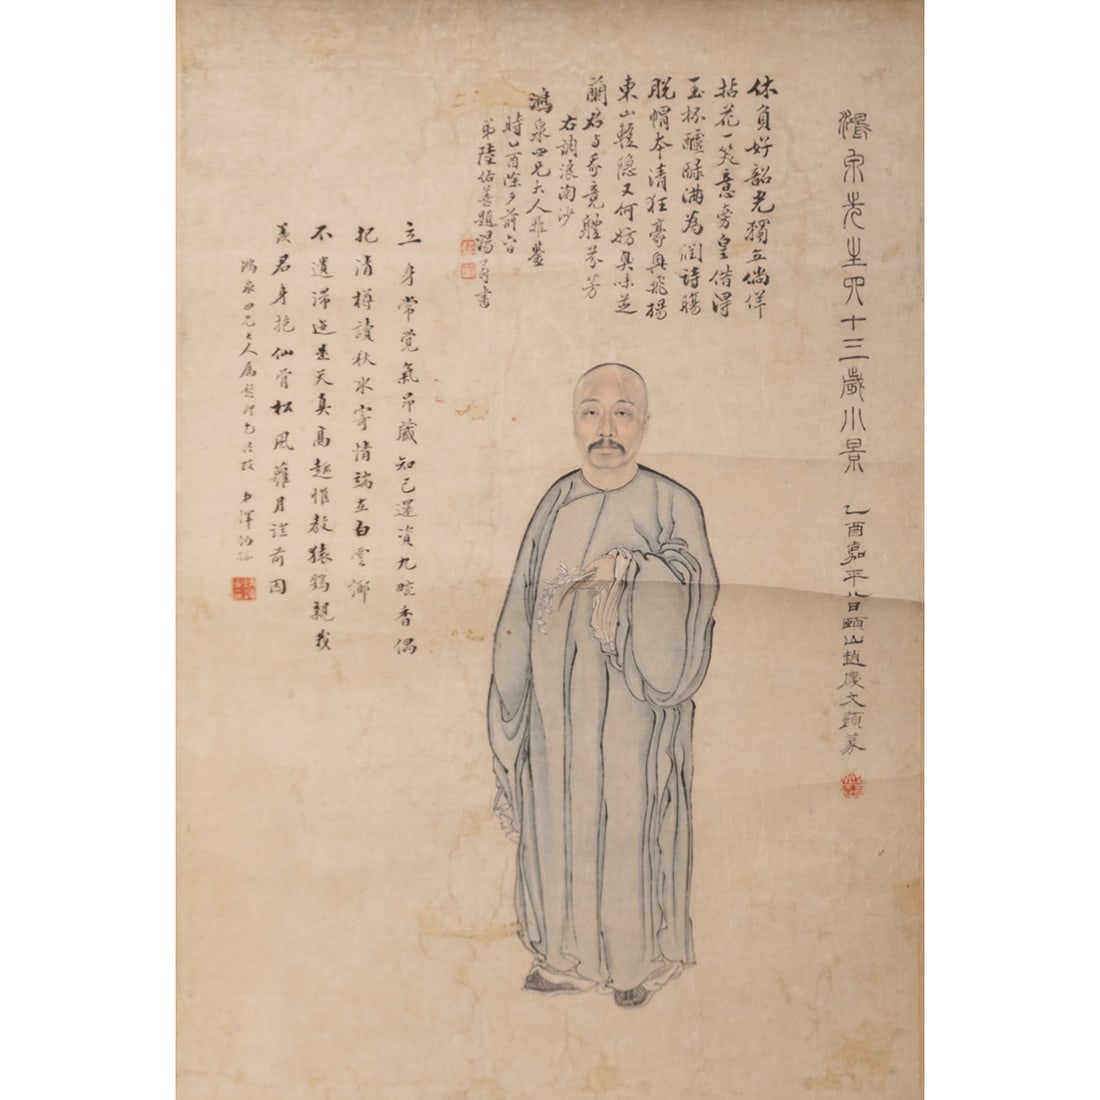 鴻泉先生四十三歲小景
乙酉嘉平八日顗山趙慶文顗篆
休負好韶光獨立徜徉
拈花一笑意旁皇借得
玉杯醽醁滿為潤詩腸
脫帽本清狂豪興飛揚
東山輕隱又何妨臭味芝
蘭君与我竟體芬芳
右調浪淘沙
鴻泉四兄大人雅鑒
時乙酉除夕前六日
弟陸佑善題湯書
立身常覺氣昂藏知己還資九畹香偶
把清樽讀秋水寄情端在白雲鄉
不遺滯迹葆天真高趣惟教猿鶴親我
羨君身抱仙骨松風蘿月證前因
鴻泉四兄大人屬題